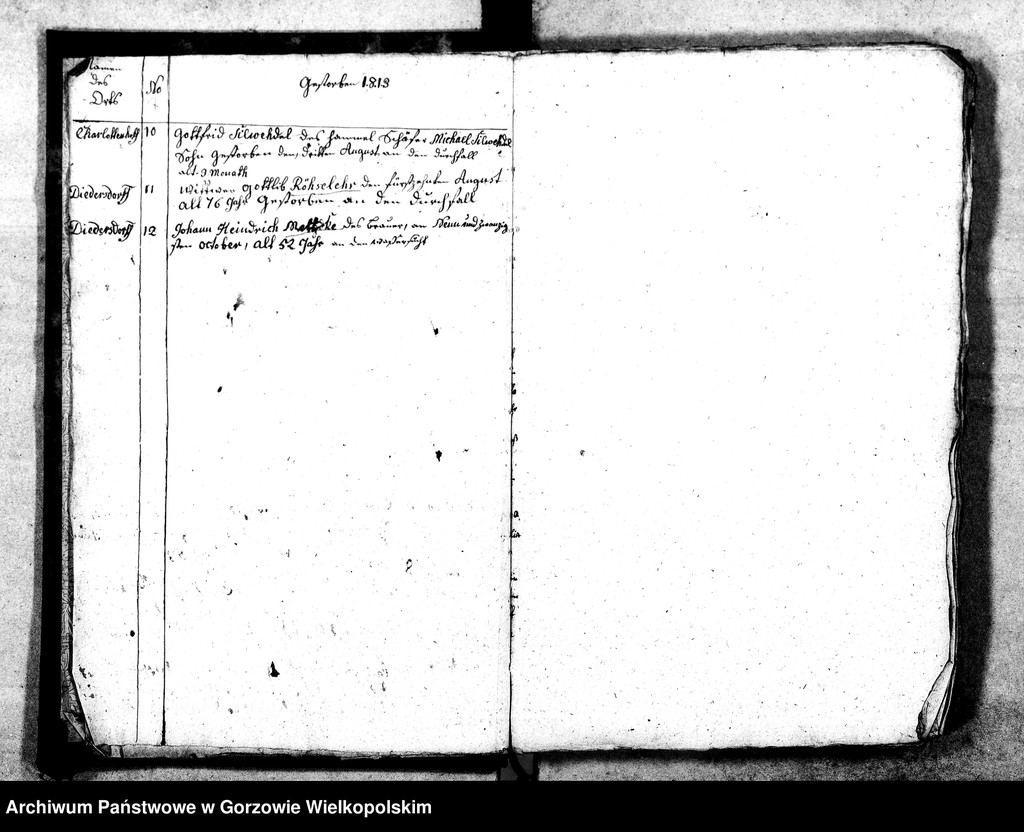 Namen
des
Orts
No
Gestorben 1813
Charlottenhoff 10 Gottfrid Silwedel des Hammel Schäfer Michael Silwedel
Sohn Gestorben den dritten August an den durchfall
alt 9 Monath
Diedersdorff 11 Wittwer Gottlib Röhselehr den funfzehnten August
alt 76 Jahr Gestorben an den durchfall
Diedersdorff 12 Johann Heindrich des brauer, an Neun und zwanzig
sten october, alt 52 Jahr an den wassersucht
Archiwum Państwowe w Gorzowie Wielkopolskim